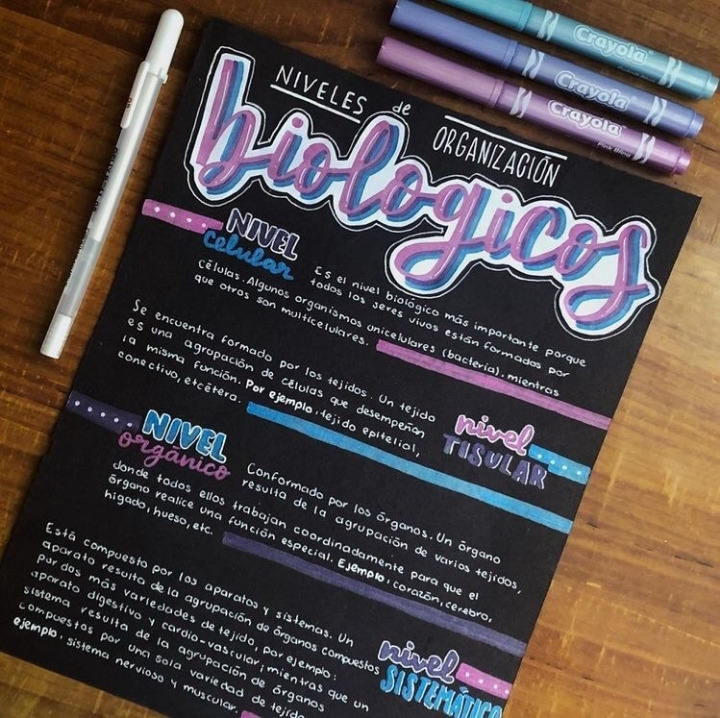 NIVELES de
ORGANIZACIÓN
biologicos
NIVEL
celular
Es el nivel biológico más importante porque
todos los seres vivos están formados por
células. Algunos organismos unicelulares (bacteria), mientras
que otros son multicelulares.
nivel
TISULAR
Se encuentra formado por los tejidos. Un tejido
es una agrupación de células que desempeñan
la misma función. Por ejemplo: tejido epitelial,
conectivo, etcétera.
NIVEL
orgánico
Conformado por los órganos. Un órgano
resulta de la agrupación de varios tejidos,
donde todos ellos trabajan coordinadamente para que el
órgano realice una función especial. Ejemplo: corazón, cerebro,
hígado, hueso, etc.
nivel
SISTEMÁTICO
Está compuesto por los aparatos y sistemas. Un
aparato resulta de la agrupación de órganos compuestos
por dos más variedades de tejido, por ejemplo:
aparato digestivo y cardio-vascular; mientras que un
sistema resulta de la agrupación de órganos
compuestos por una sola variedad de tejido
ejemplo: sistema nervioso y muscular.
Crayola
Crayola
Crayola